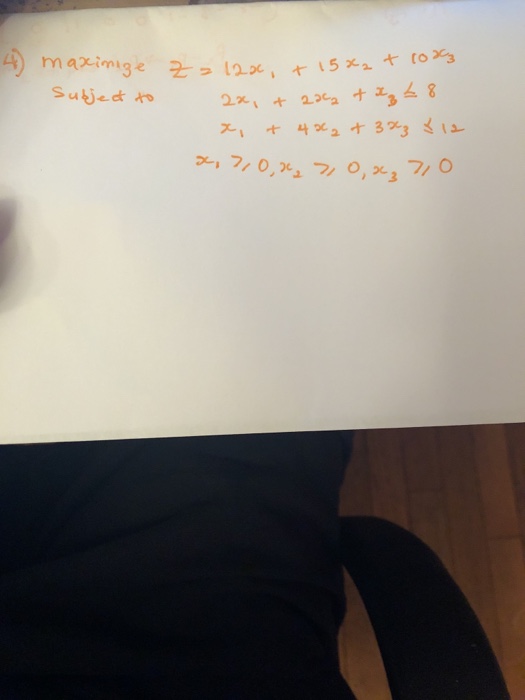 4) maximize Z = 12x₁ + 15x₂ + 10x₃
Subject to 2x₁ + 2x₂ + x₃ ≤ 8
x₁ + 4x₂ + 3x₃ ≤ 12
x₁ ≥ 0, x₂ ≥ 0, x₃ ≥ 0